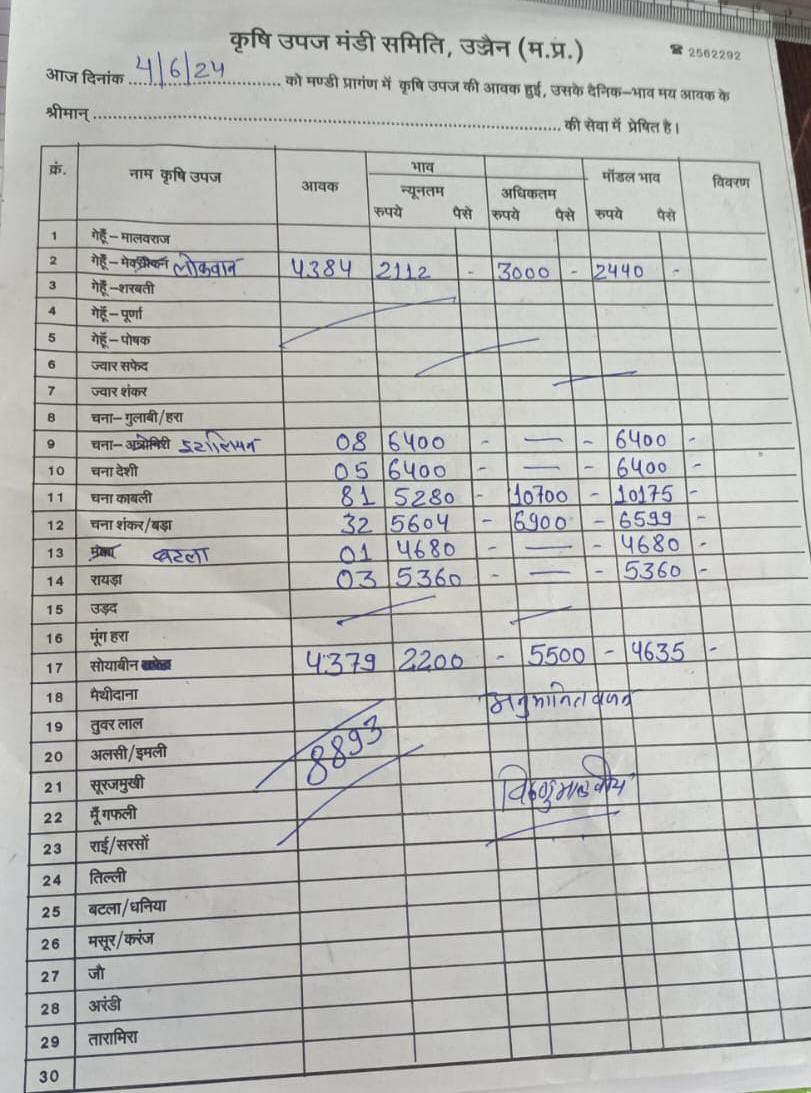 कृषि उपज मंडी समिति, उज्जैन (म.प्र.) ☎ 2562292
आज दिनांक 4/6/24 को मण्डी प्रागंण में कृषि उपज की आवक हुई, उसके दैनिक-भाव मय आवक के
श्रीमान् की सेवा में प्रेषित है।
क्रं. नाम कृषि उपज आवक भाव मॉडल भाव विवरण
न्यूनतम अधिकतम
रुपये पैसे रुपये पैसे रुपये पैसे
1 गेहूँ-मालवराज
2 गेहूँ- लोकवान 4384 2112 - 3000 - 2440 -
3 गेहूँ-शरबती
4 गेहूँ-पूर्णा
5 गेहूँ-पोषक
6 ज्वार सफेद
7 ज्वार शंकर
8 चना-गुलाबी/हरा
9 चना- इटालियन 08 6400 - — - 6400 -
10 चना देशी 05 6400 - — - 6400 -
11 चना काबली 81 5280 - 10700 - 10175 -
12 चना शंकर/बड़ा 32 5604 - 6900 - 6599 -
13 बटला 01 4680 - — - 4680 -
14 रायड़ा 03 5360 - — - 5360 -
15 उड़द
16 मूंग हरा
17 सोयाबीन 4379 2200 - 5500 - 4635 -
18 मैथीदाना अनुमानित वजन
19 तुवर लाल
20 अलसी/इमली 8893
21 सूरजमुखी
22 मूँगफली
23 राई/सरसों
24 तिल्ली
25 बटला/धनिया
26 मसूर/करंज
27 जौ
28 अरंडी
29 तारामिरा
30